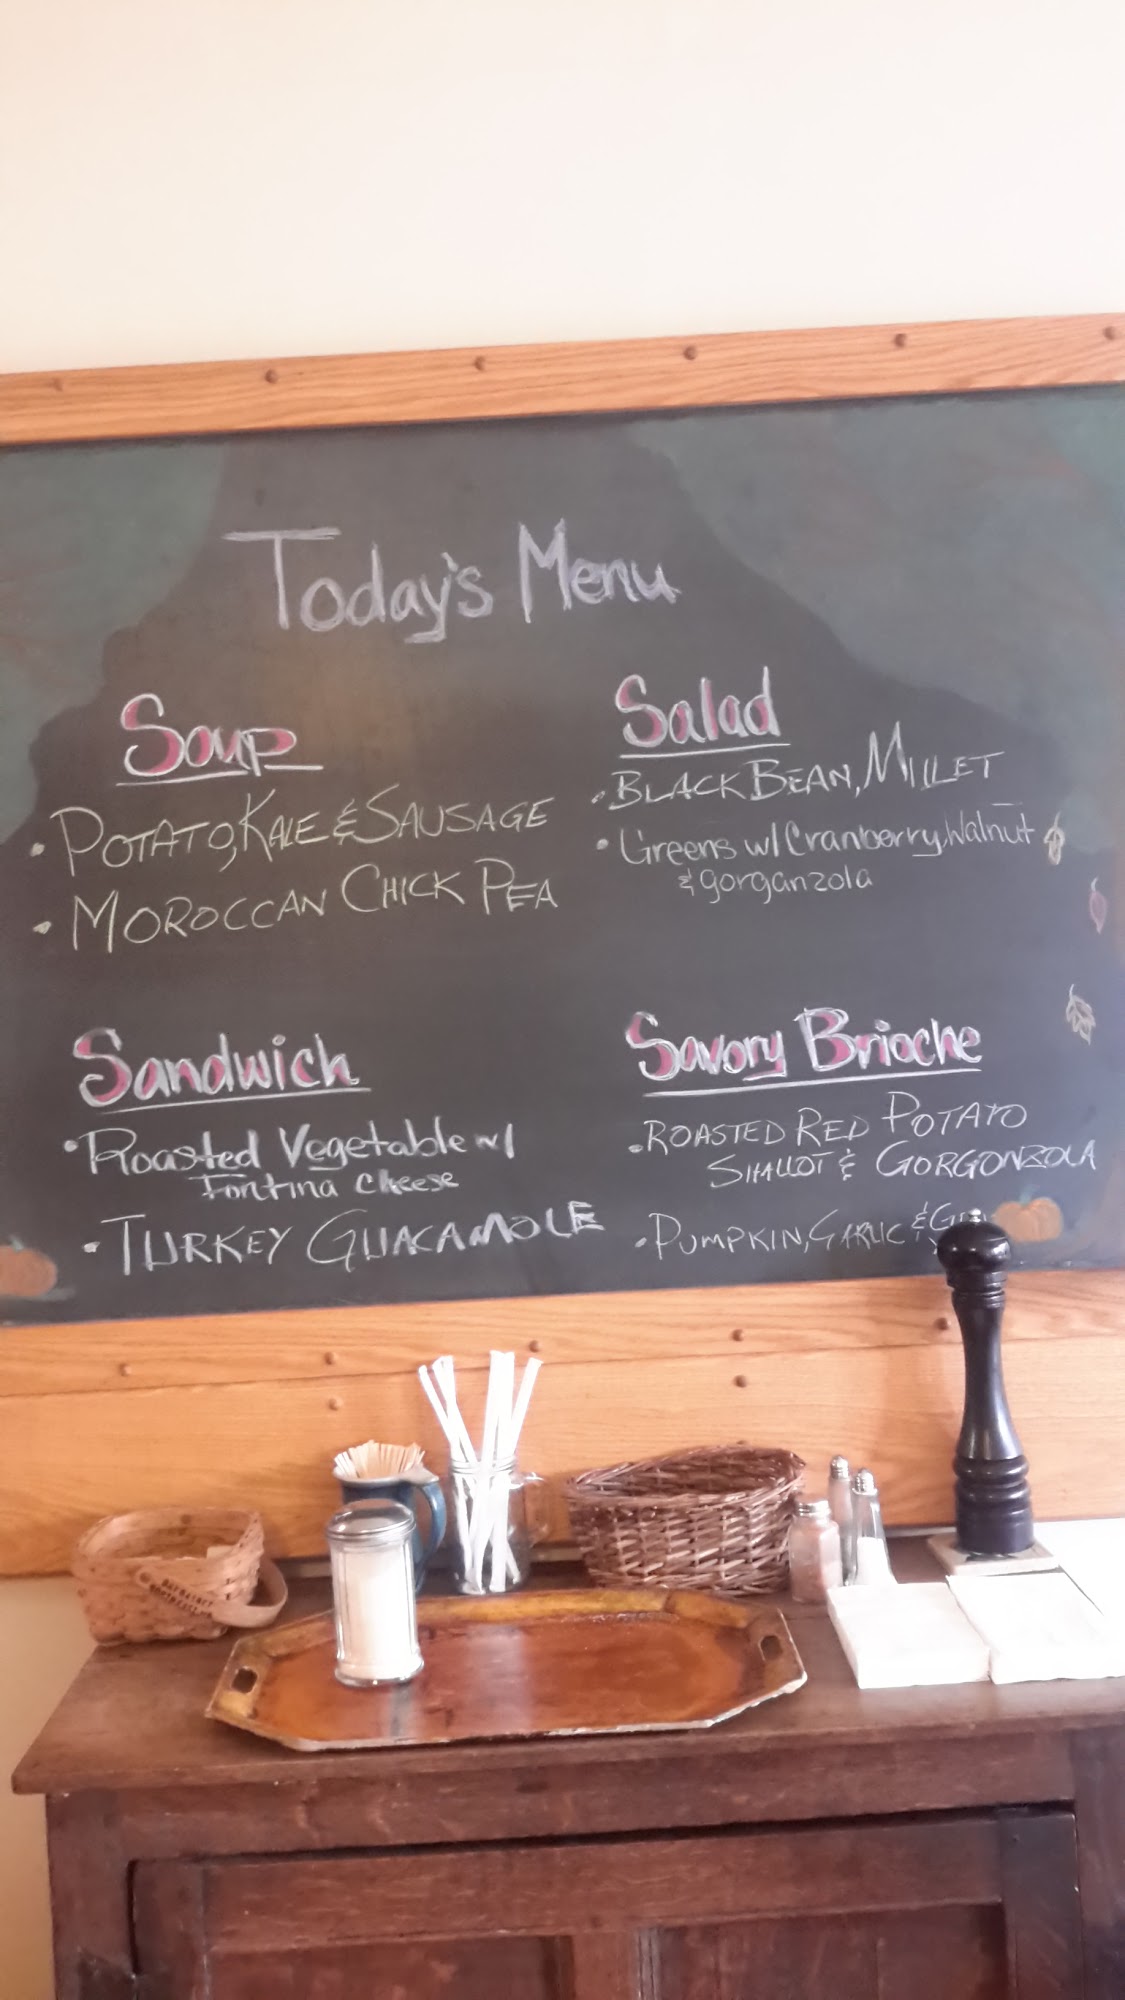 Today's Menu
Soup
• POTATO, KALE & SAUSAGE
• MOROCCAN CHICK PEA
Salad
• BLACK BEAN, MILLET
• Greens w/ Cranberry, Walnut
& gorganzola
Sandwich
• Roasted Vegetable w/
Fontina Cheese
• TURKEY GUACAMOLE
Savory Brioche
• ROASTED RED POTATO
SHALLOT & GORGONZOLA
• PUMPKIN, GARLIC &